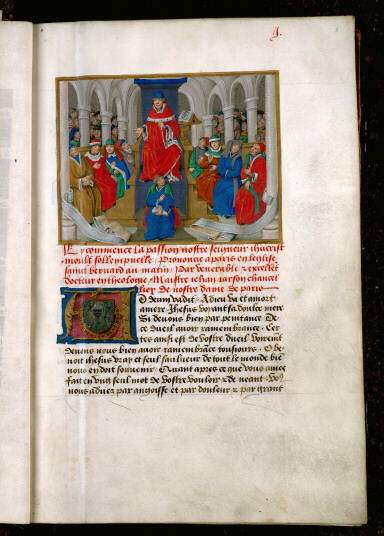 1.
Cy commence la passion nostre seigneur ihucrist
moult sollempnelle. Prononcee a paris en leglise
saint bernard au matin. Par venerable z excellent
docteur en theologie Maistre iehan iarson chancel
lier de nostre dame de paris
D deum vadit. A dieu va et a mort
amere Ihesus voyant sa doulce mere
Si devons bien par penitance De
ce dueil avoir ramembrance. Cer
tes ainsi est de vostre dueil Doivent
devons nous bien avoir ramembrance tousiours. O be
noit ihesus vray et seul saulveur de tout le monde bie
nous en doit souvenir. Quant apres ce que vous aviez
fait en ung seul mot de vostre vouloir z de neant
nous a par angoisse et par douleur z par grant